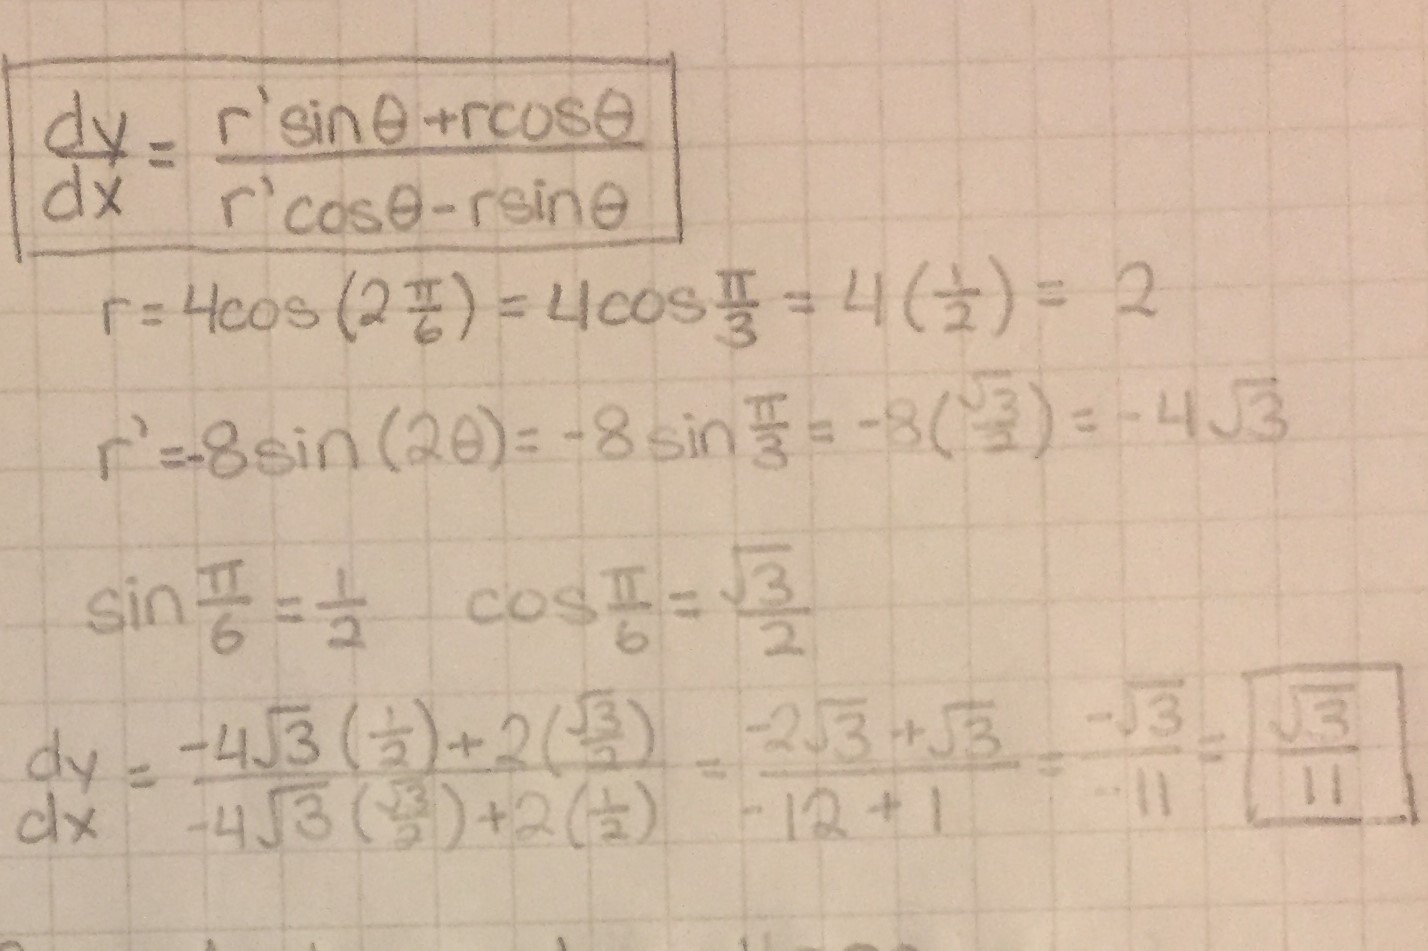 dy/dx = (r'sinθ+rcosθ)/(r'cosθ-rsinθ)
r=4cos(2 π/6)=4cos π/3 = 4(1/2)= 2
r'=-8sin(2θ)=-8sin π/3 = -8(√3/2)=-4√3
sin π/6 = 1/2 cos π/6 = √3/2
dy/dx = (-4√3(1/2)+2(√3/2))/(-4√3(√3/2)+2(1/2)) = (-2√3+√3)/(-12+1) = -√3/-11 = √3/11